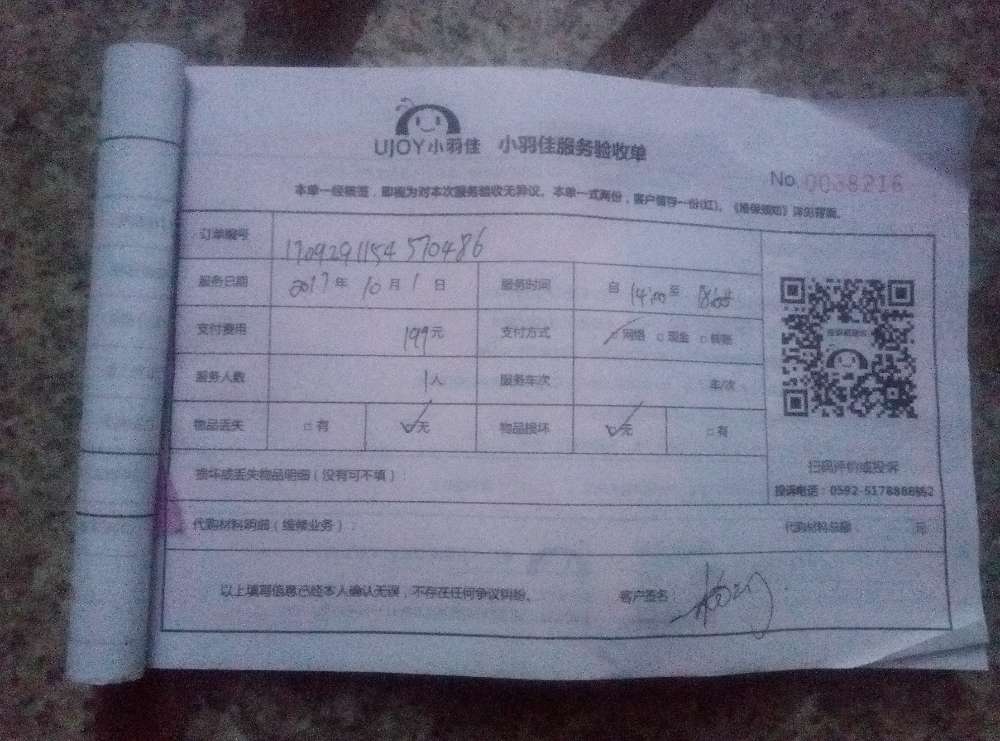 UJOY小羽佳 小羽佳服务验收单
No 0038216
本单一经签签，即视为对本次服务验收无异议。本单一式两份，客户留存一份(红)。《维保须知》详见背面。
订单编号 1709291154570486
服务日期 2017年10月1日 服务时间 自14:00至
支付费用 199元 支付方式 □网络 □现金 □转账
服务人数 1人 服务车次 车/次
物品丢失 □有 □无 物品损坏 □无 □有
损坏或丢失物品明细（没有可不填）：
扫码评价或投诉
投诉电话：0592-5178888转2
代购材料明细（维修业务）： 代购材料总额： 元
以上填写信息已经本人确认无误，不存在任何争议纠纷。 客户签名：